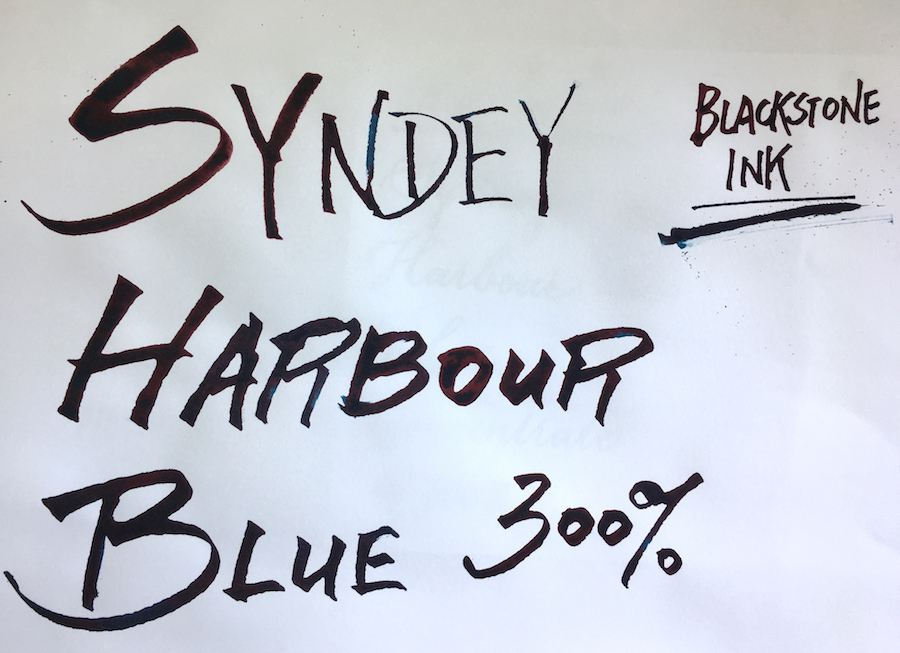 SYNDEY
BLACKSTONE
INK
HARBOUR
BLUE 300%